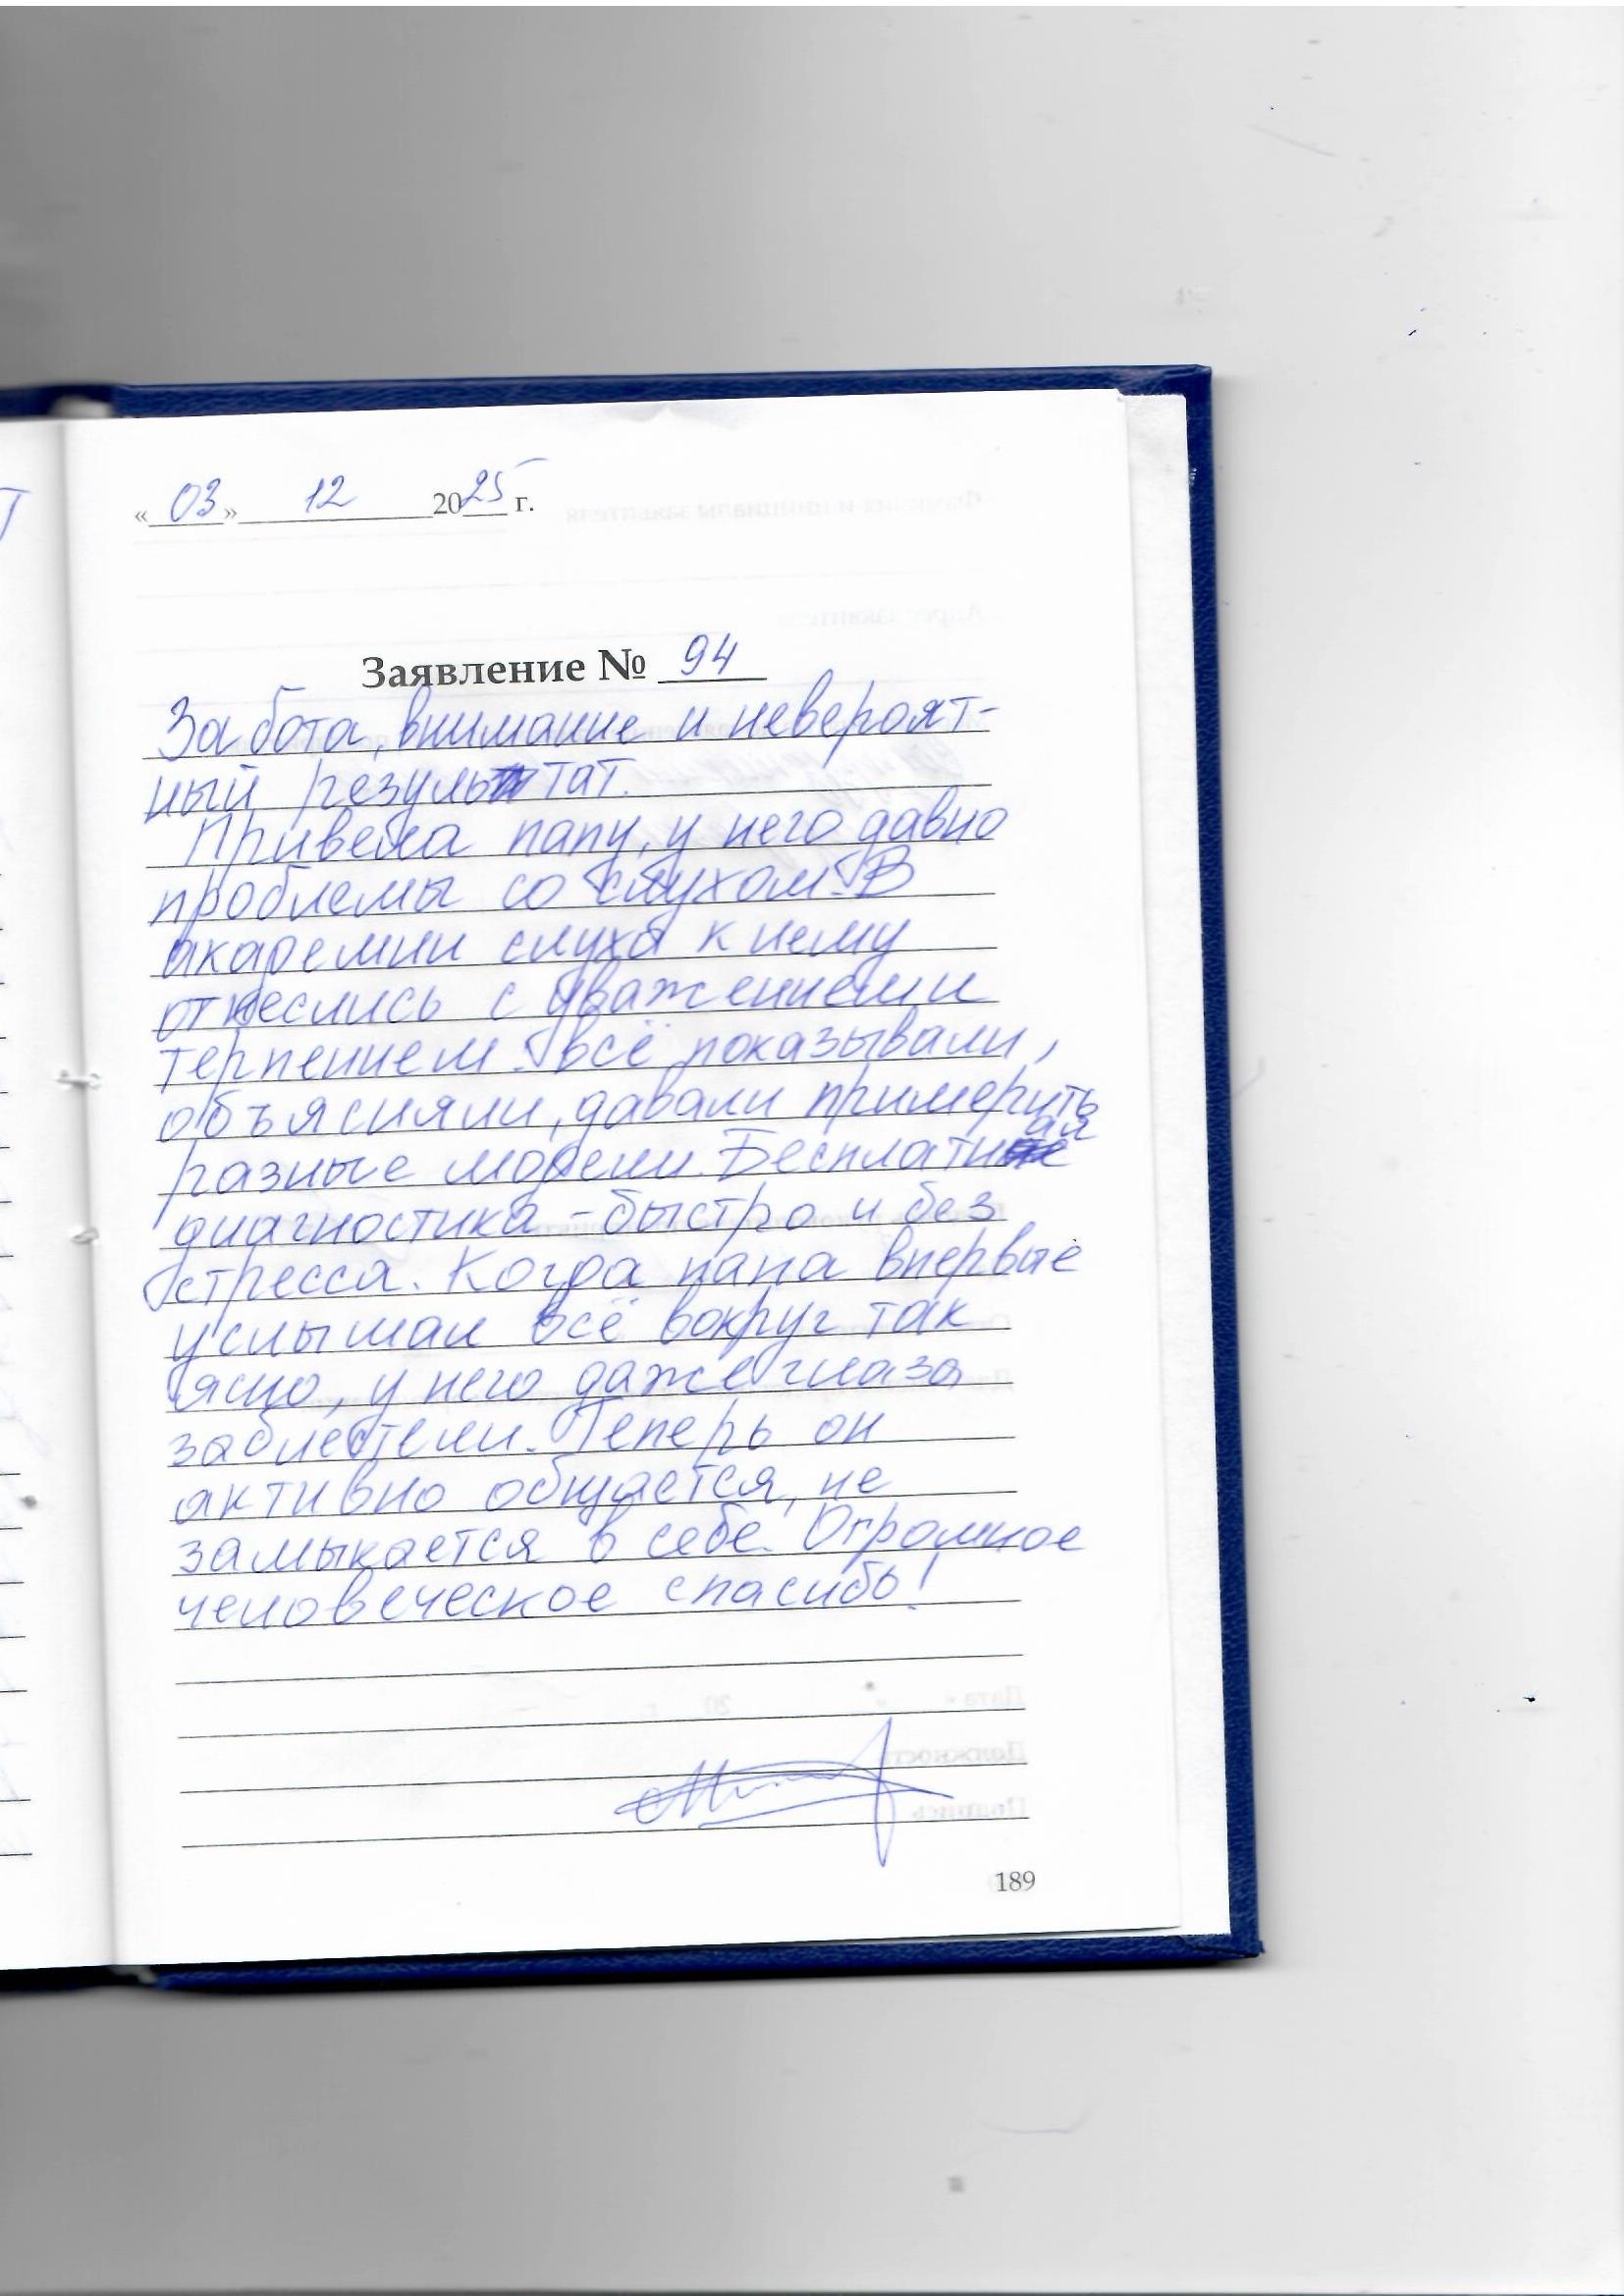 «03» 12 2025 г.
Заявление № 94
Забота, внимание и невероят-
ный результат.
Привела папу, у него давно
проблемы со слухом. В
академии слуха к нему
отнеслись с уважением и
терпением. Всё показывали,
объясняли, давали примерить
разные модели. Бесплатная
диагностика - быстро и без
стресса. Когда папа впервые
услышал всё вокруг так
ясно, у него даже глаза
заблестели. Теперь он
активно общается, не
замыкается в себе. Огромное
человеческое спасибо!
189